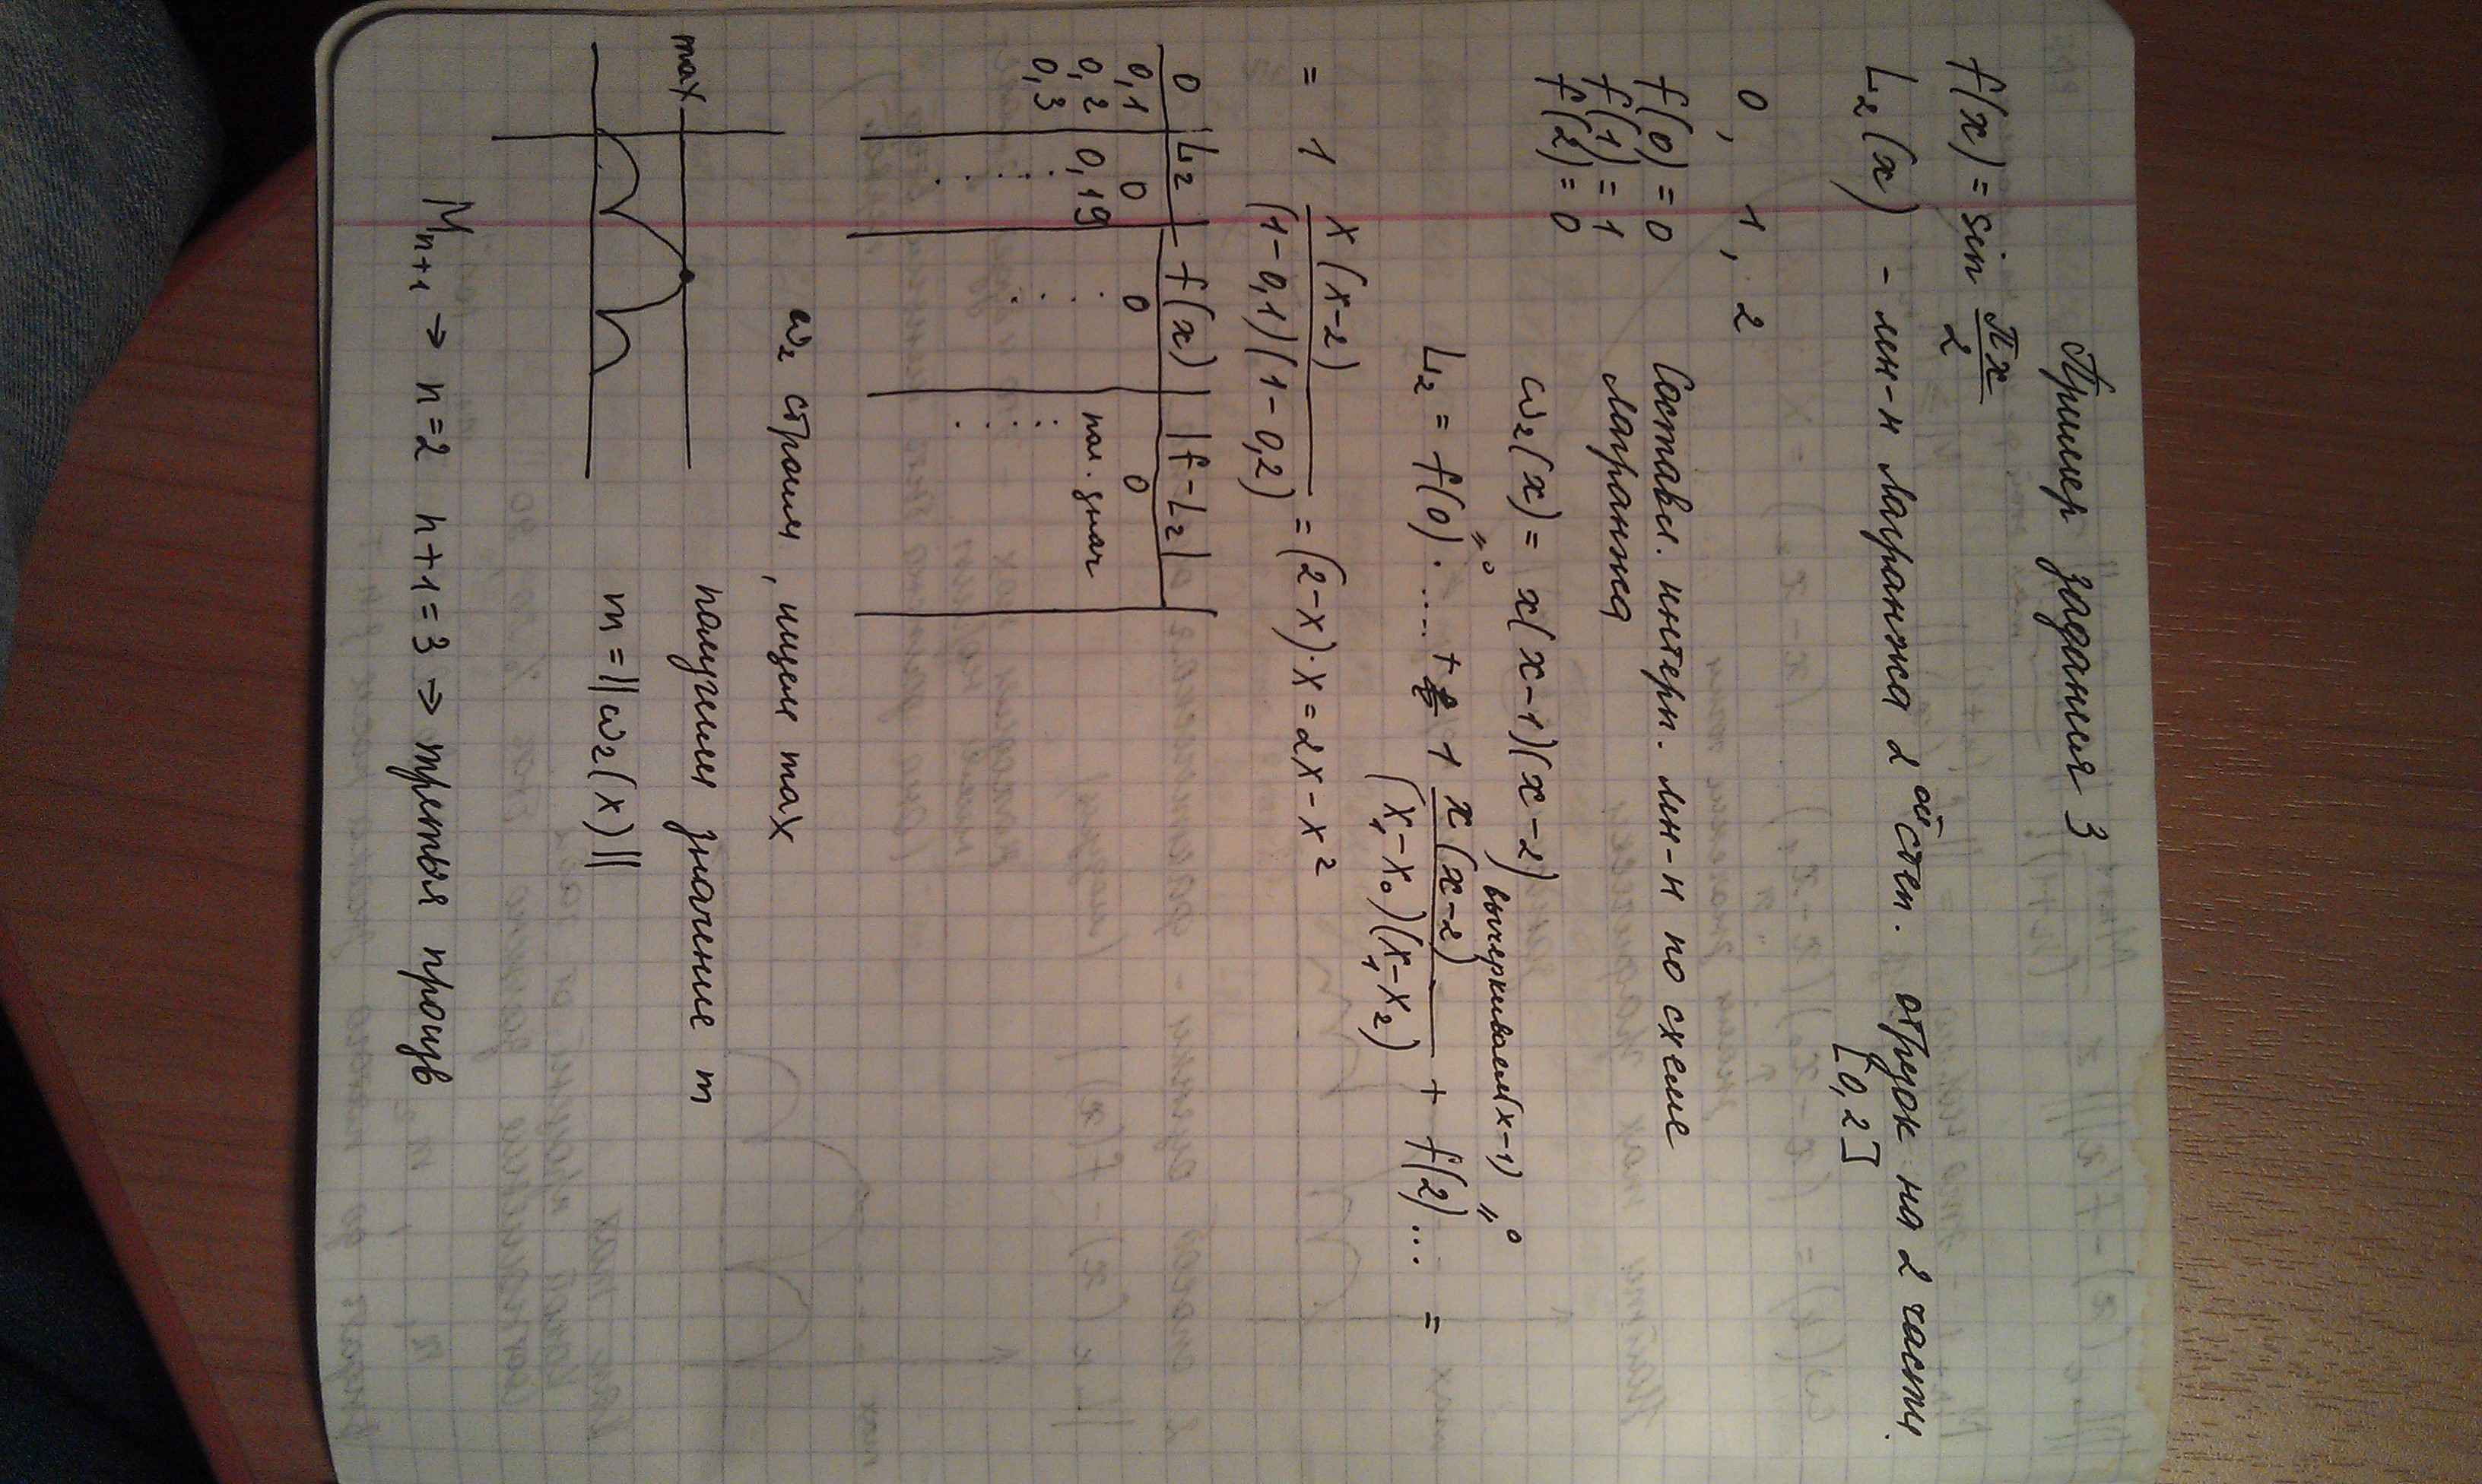 Пример задания 3
f(x) = sin πx/2
L₂(x) - мн-н Лагранжа 2ой степ. отрезок на 2 части.
[0, 2]
0, 1, 2
f(0) = 0
f(1) = 1
f(2) = 0
Составл. интерп. мн-н по схеме
Лагранжа
ω₂(x) = x(x-1)(x-2) вычеркиваем(x-1)
L₂ = f(0) · .... + 1 x(x-2)/(x₁-x₀)(x₁-x₂) + f(2)... =
"0 "0
= 1 x(x-2)/(1-0,1)(1-0,2) = (2-x)·x = 2x - x²
0 | L₂ | f(x) | |f-L₂|
0,1 | 0 | 0 | 0
0,2 | 0,19 | . | пол. знач
0,3 | : | : | :
ω₂ строим, ищем max
max
получим значение m
m = ||ω₂(x)||
Mₙ₊₁ → n=2 n+1=3 → третья произв